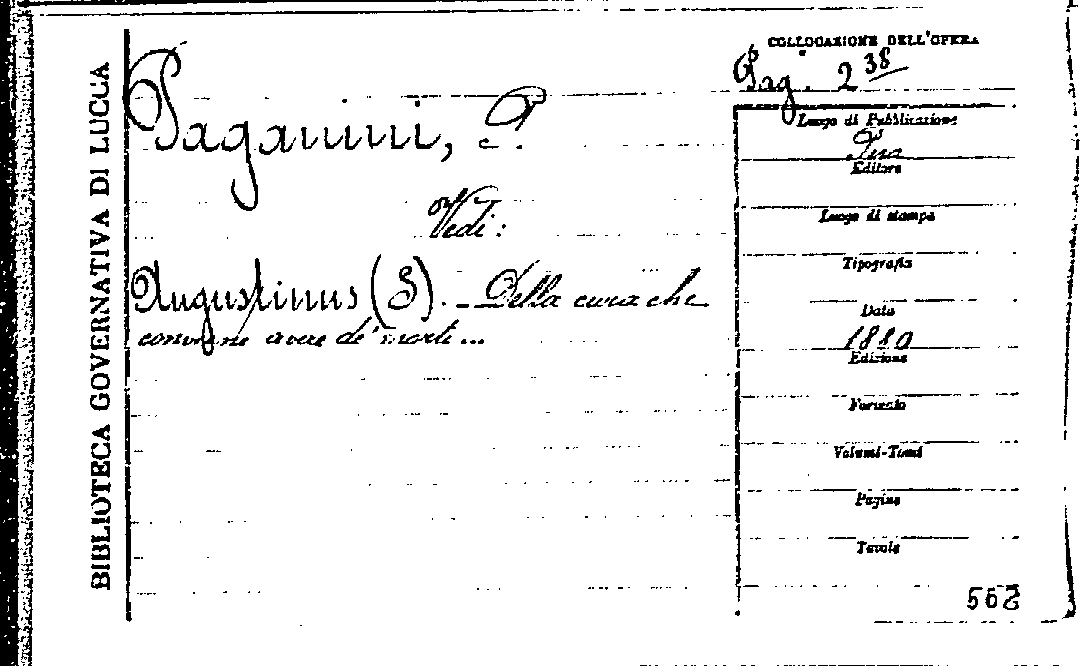 BIBLIOTECA GOVERNATIVA DI LUCCA
Paganini, P.
Vedi:
Augustinus (S). - Della cura che
conviene avere de' morti...
COLLOCAZIONE DELL'OPERA
Pag. 2 38
Luogo di Pubblicazione
Editore
Luogo di stampa
Tipografia
Data
1880
Edizione
Formato
Volumi-Tomi
Pagine
Tavole